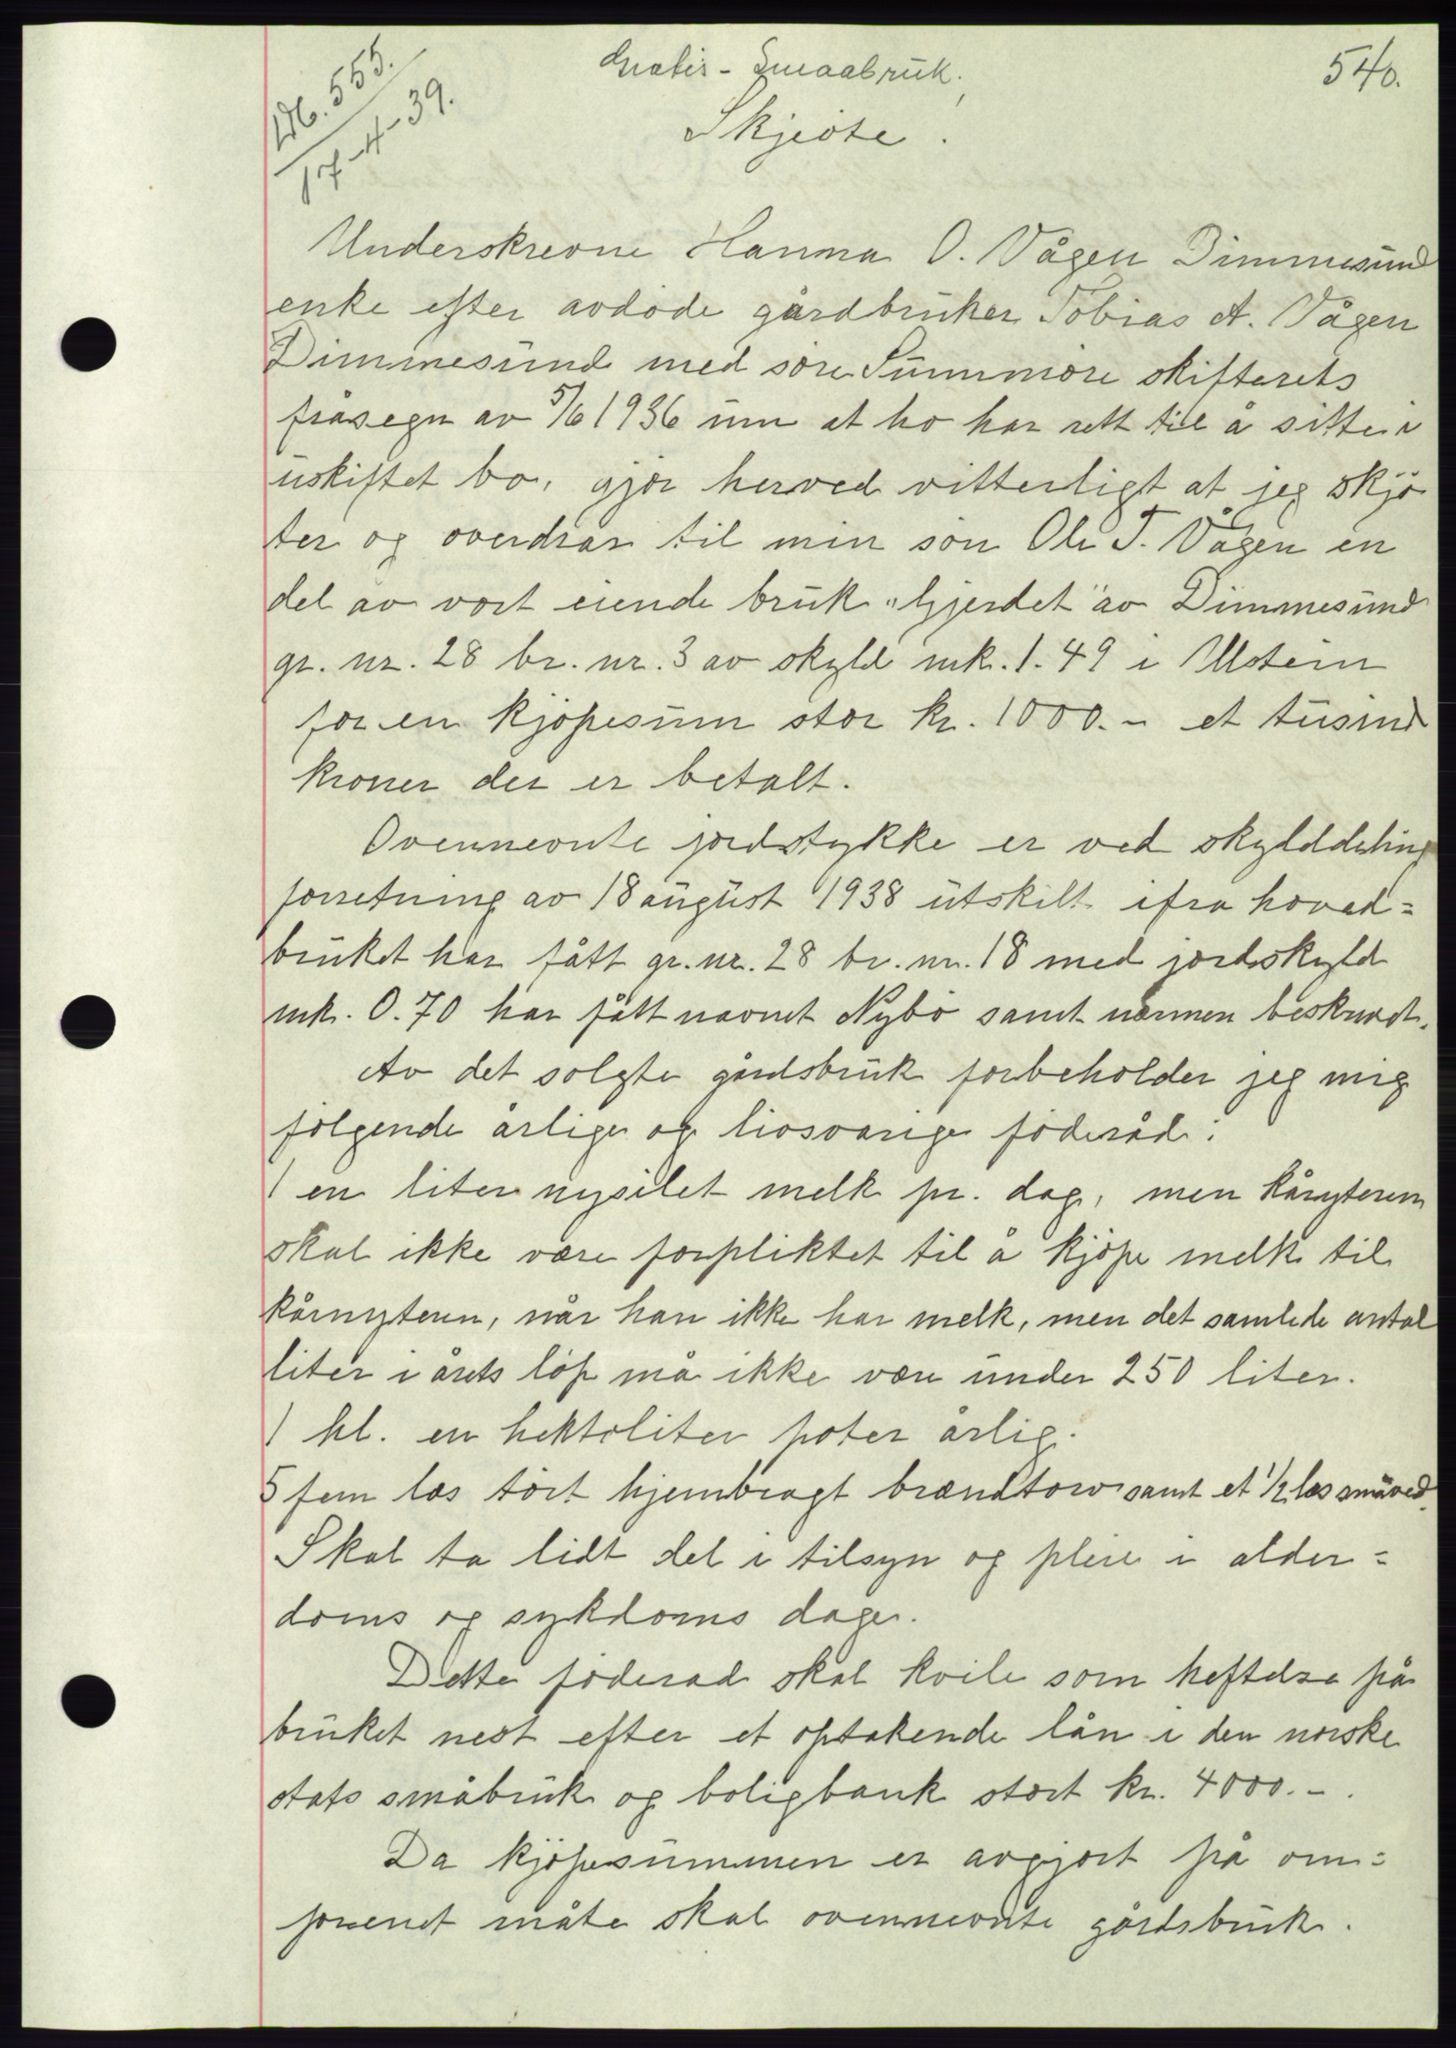 Gratis - Smaabruk.
540.
Db. 555.
17-4-39.
Skjeöte.
Underskrevne Hanna O. Vågen Dimmesund
enke efter avdöde gårdbruker Tobias A. Vågen
Dimmesund med söre Sunnmöre skifterets
fråsegn av 5/6 1936 um at ho har rett til å sitte i
uskiftet bo, gjör herved vitterligt at jeg skjö
ter og overdrar til min sön Ole T. Vågen en
del av vort eiende bruk "Gjerdet" av Dimmesund
gr. nr. 28 br. nr. 3 av skyld mk. 1.49 i Ulstein
for en kjöpesum stor kr. 1000.- et tusind
kroner der er betalt.
Ovennevnte jordstykke er ved skylddeling
forretning av 18 august 1938 utskilt ifra hoved=
bruket har fått gr. nr. 28 br. nr. 18 med jordskyld
mk. 0.70 har fått navnet Nybö samt nærmen beskrevet.
Av det solgte gårdsbruk forbeholder jeg mig
fölgende årlige og livsvarige föderåd:
1 en liter nysilet melk pr. dag, men kåryteren
skal ikke være forpliktet til å kjöpe melk til
kårnyteren, når han ikke har melk, men det samlede antal
liter i årets löp må ikke være under 250 liter.
1 hl. en hektoliter poter årlig.
5 fem læs tört hjembragt brændtorv samt et 1/2 læs småved.
Skal ta lidt del i tilsyn og pleie i alder=
doms og sykdoms dage.
Dette föderåd skal kvile som heftelse på
bruket nest efter et optakende lån i den norske
stats småbruk og boligbank stort kr. 4000.-.
Da kjöpesummen er avgjort på om=
forenet måte skal ovennevnte gårdsbruk.